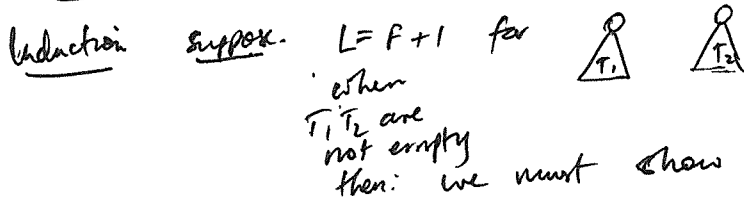 Induction suppose. L = F + 1 for T₁ T₂
when
T₁ T₂ are
not empty
then: we must show